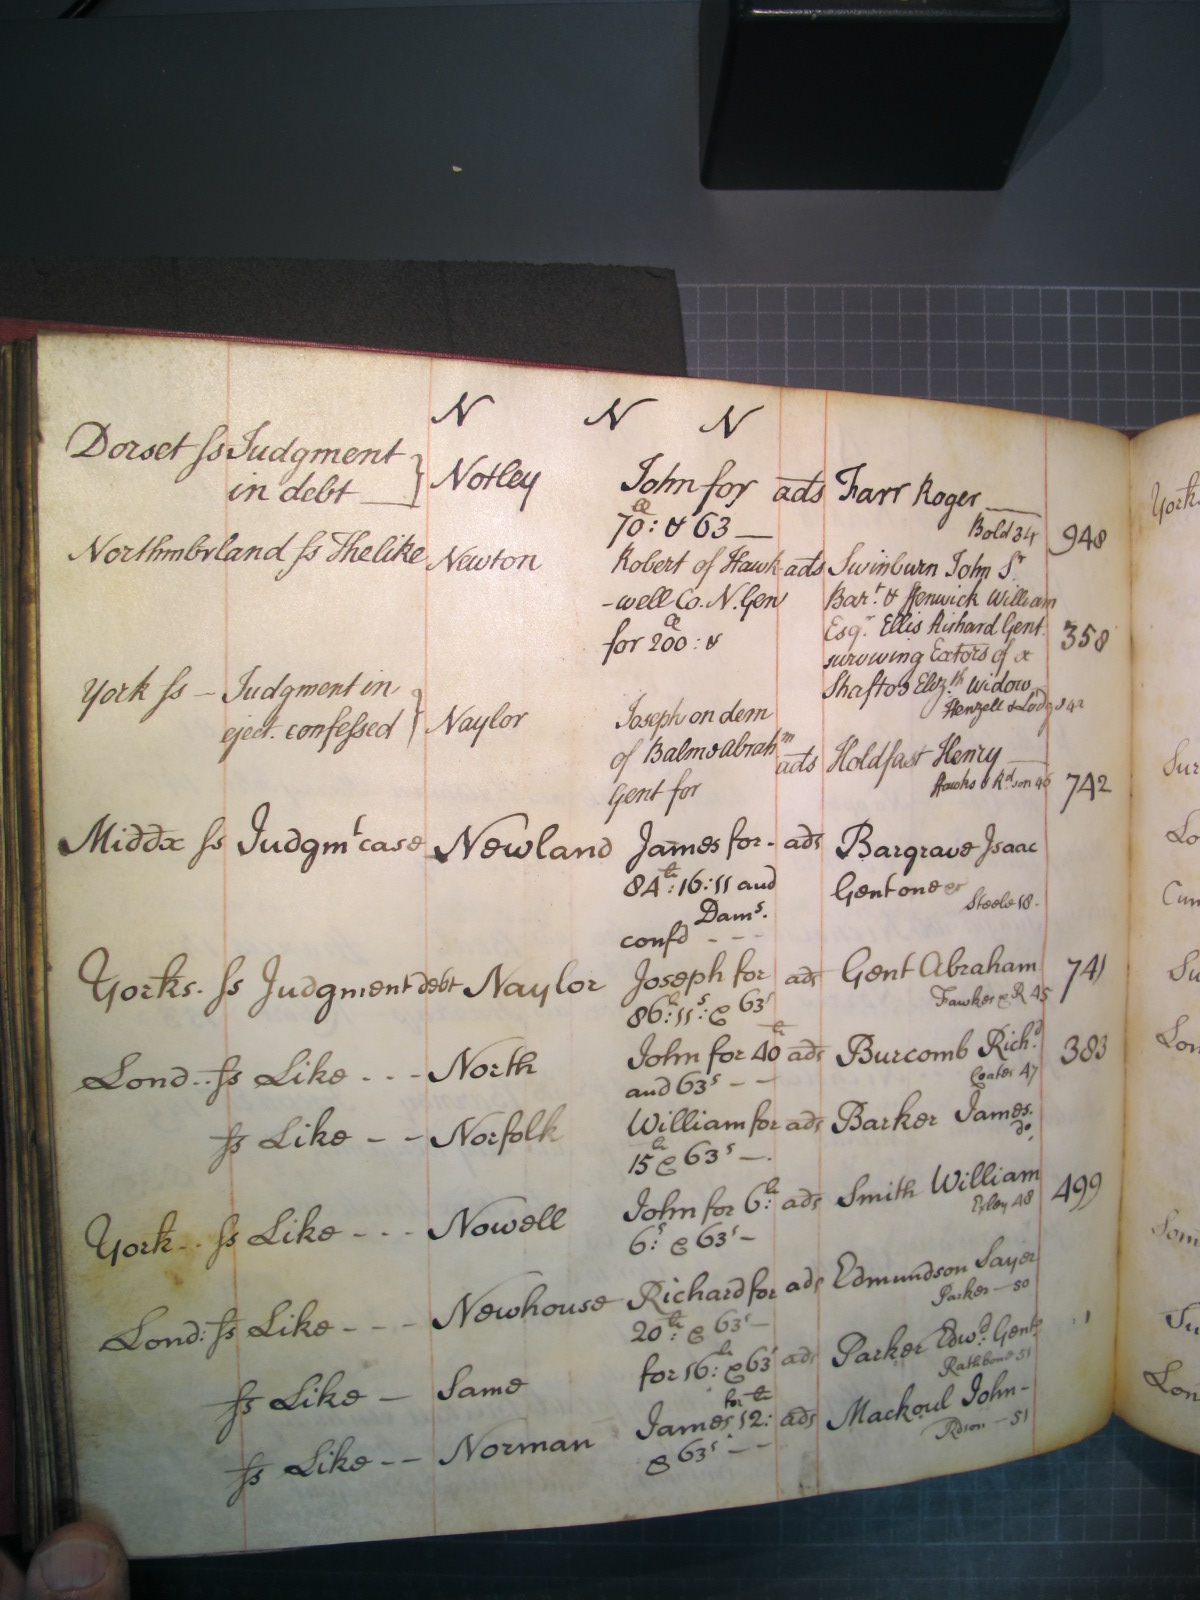 N N N
Dorset ss Judgment Notley John for ads Farr Roger
in debt 70: & 63 — Bold 34 948
Northmbrland ss The like Newton Robert of Hawk ads Swinburn John Sr
-well Co. N. Gen Bart. & Fenwick William
for 200: & Esqr. Ellis Richard Gent. 358
surviving Exctors of
Shaftos Eliz.th Widow
York ss – Judgment in Henzell & 
eject. confessed Naylor Joseph on dem
of Balm & Abrahm ads Holdfast Henry
Gent for 46 742
Middx ss Judgmt case Newland James for - ads Bargrave Isaac
84li: 16: 11 and Gent one 
Dams. Steele 18.
confd - - -
Yorks. ss Judgment debt Naylor Joseph for ads Gent Abraham 741
86li: 11s: & 63s Fawkes & R 45
Lond.. ss Like - - - North John for 40li ads Burcomb Richd. 383
and 63s - - Coates 47
ss Like - - Norfolk William for ads Barker James.
15li & 63s —. do.
York.. ss Like - - - Nowell John for 6li: ads Smith William 499
6s: & 63s – 48
Lond: ss Like - - - Newhouse Richard for ads Edmundson Sayer
20li: & 63s — Parker — 50
ss Like – Same for 16li: & 63s ads Parker Edwd: Gent:
Rathbone 51
for li
ss Like - - Norman James 12: ads Mackoul John -
& 63s - - Rdson — 51
York
Sur
Lo
Cum
Su
Lon
Som
Su
Lon